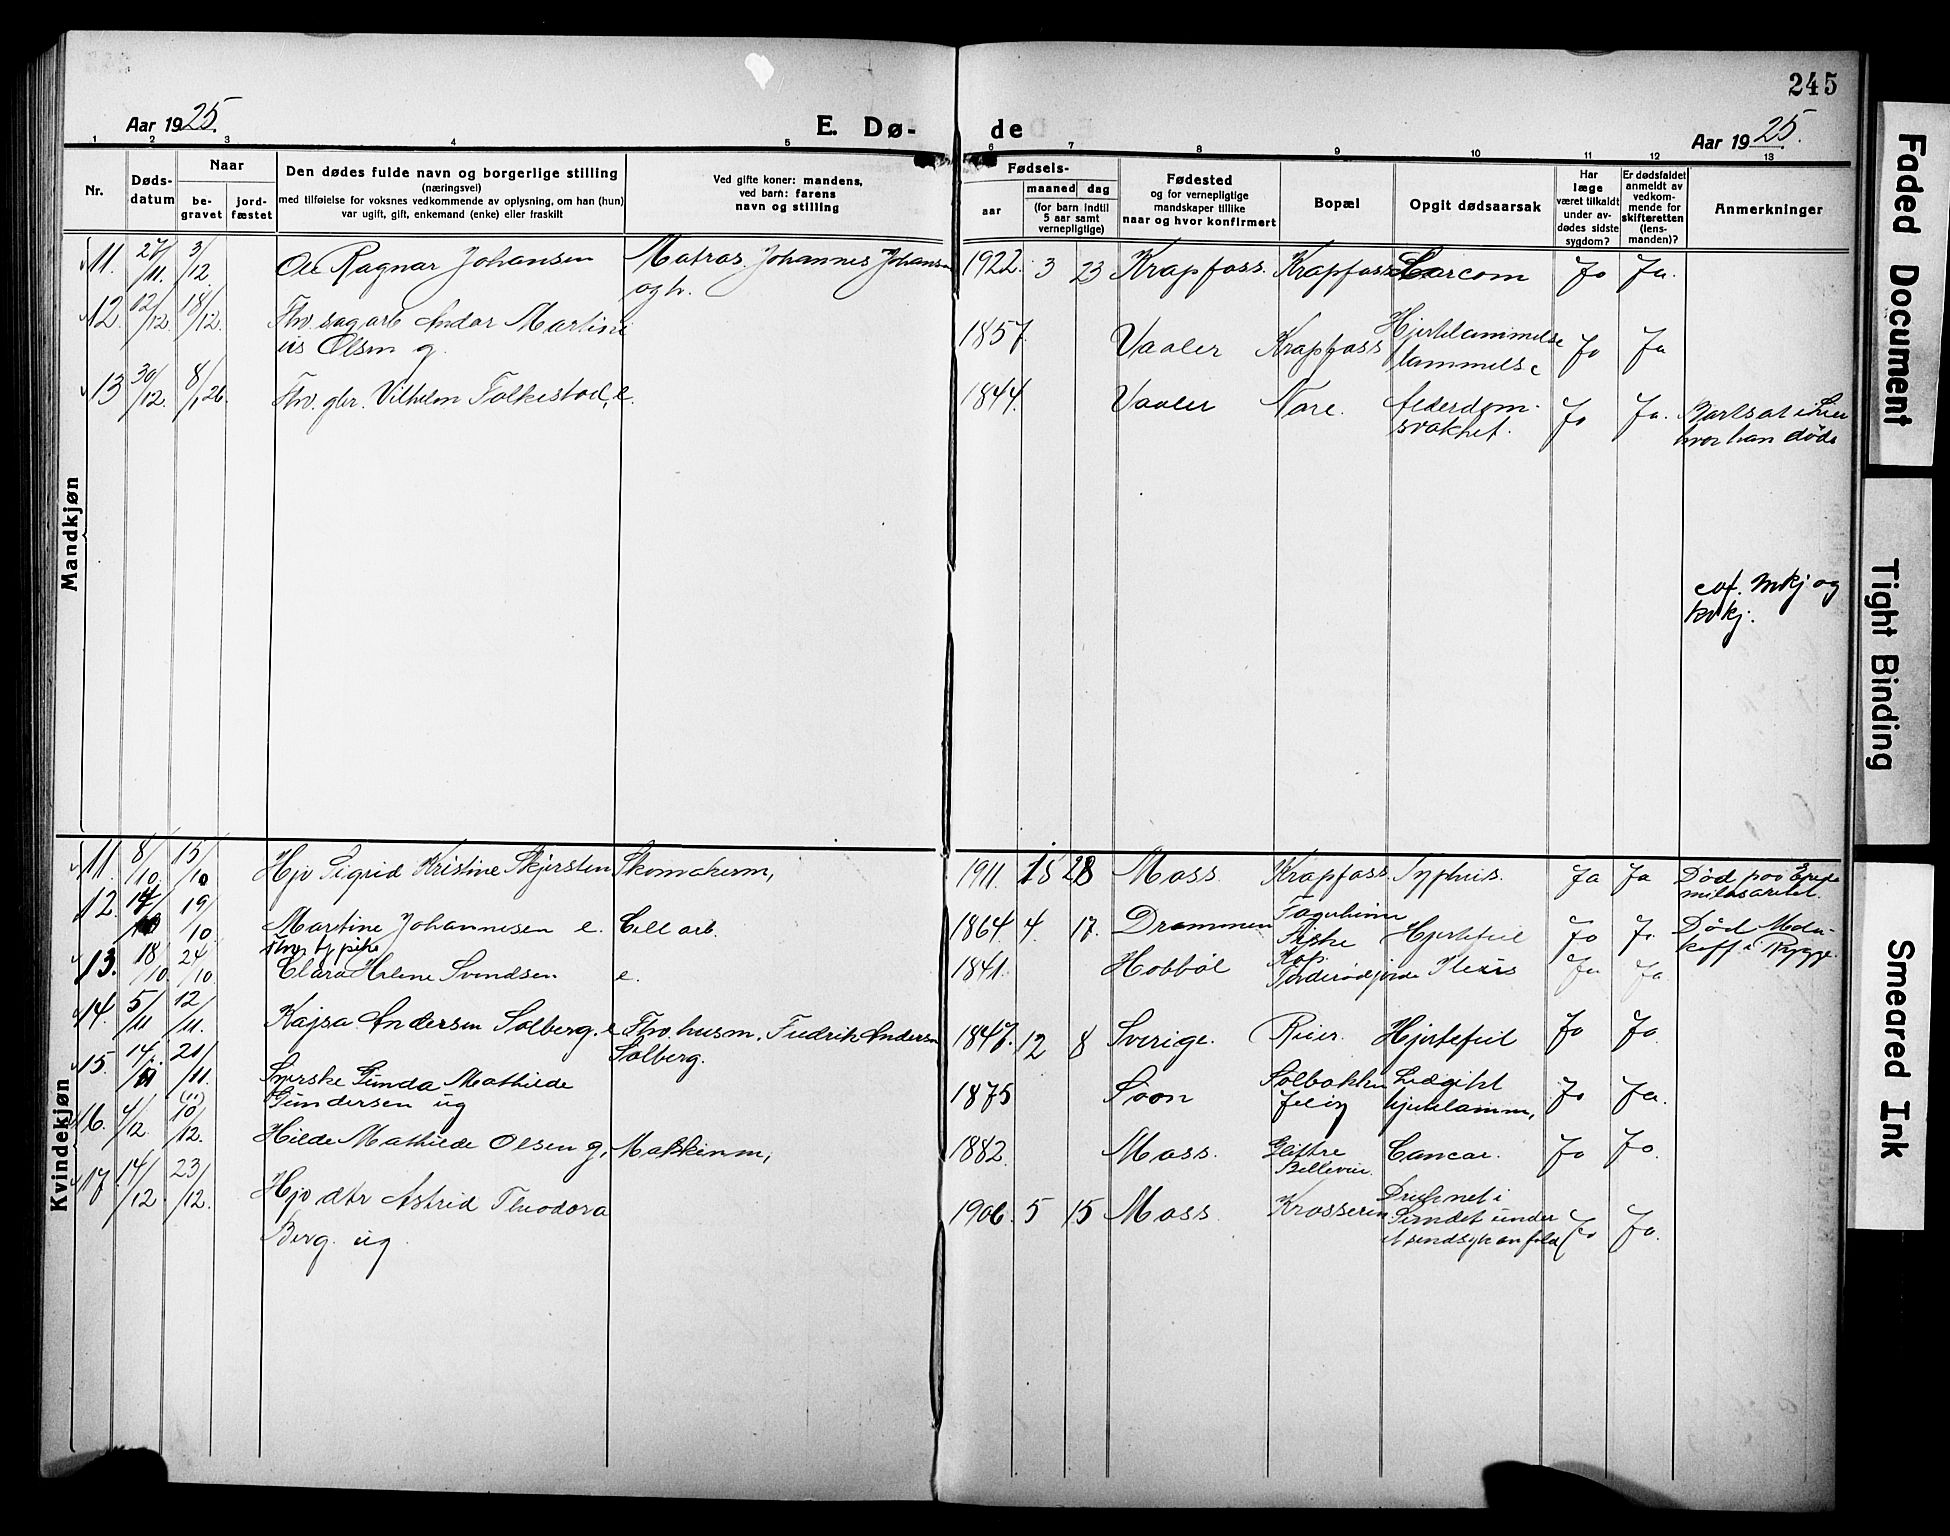 245
Aar 1925.
E. Dø-
de
Aar 1925.
1 2 3 4 5 6 7 8 9 10 11 12 13
Nr.
Døds-
datum
Naar
be-
gravet
jord-
fæstet
Den dødes fulde navn og borgerlige stilling
(næringsvei)
med tilføielse for voksnes vedkommende av oplysning, om han (hun)
var ugift, gift, enkemand (enke) eller fraskilt
Ved gifte koner: mandens,
ved barn: farens
navn og stilling
Fødsels-
aar
maaned
dag
(for barn indtil
5 aar samt
vernepligtige)
Fødested
og for vernepligtige
mandskaper tillike
naar og hvor konfirmert
Bopæl
Opgit dødsaarsak
Har
læge
været tilkaldt
under av-
dødes sidste
sygdom?
Er dødsfaldet
anmeldt av
vedkom-
mende for
skifteretten
(lens-
manden)?
Anmerkninger
Mandkjøn
11. 27/11. 3/12. Ole Ragnar Johansen Matros Johannes Johansen 1922. 3 23 Krapfoss. Krapfoss Sarcom Ja Ja.
og h.
12. 12/12. 18/12. Fhv. sagarb Andor Martini
us Olsen g. 1857. Vaaler Krapfoss Hjertelammelse Ja Ja
lammelse
13 30/12. 8/1 26. Fhv. gbr. Vilhelm Folkestad, e. 1844. Vaaler Nore. Alderdom- Ja Ja. Bortsat i Lier
svakhet. hvor han døde
eaf. Mkj og
kvkj.
Kvindekjøn
11. 8/10 15/10 Hjv Sigrid Kristine Skjersten Skomakerm, 1911. 15 28 Moss. Krapfoss. Typhus. Ja Ja Død paa Epide
milasarettet.
12. 14/10 19/10 Martine Johannesen e. Cell arb. 1864. 4 17. Drammen Fagerheim Hjertefeil Ja Ja. Død Mela-
13. 18/10 24/10 Fhv. tj pike
Clara Helene Svendsen e. 1841. Hobbøl Ja Ja i Rygge.
14. 5/11 12/11. Kajsa Andersen Solberg. e Fhv. husm. Fredrik Andersen 1847. 12 8 Sverige. Reier. Hjertefeil Ja Ja.
Solberg.
15. 14/11 21/11. Syerske Gunda Mathilde
Gundersen ug 1875 Soon Solbakken
Jeløy hjertelamm, Ja Ja.
16. 4/12. 10/12. Hilda Mathilde Olsen g, Maskinm, 1882. Moss. Bellevue. Cancer. Ja Ja.
17. 14/12 23/12. Hjv dtr Astrid Theodora
Berg. ug. 1906. 5 15 Moss. Krosseren. Druknet i
Sundet under
et sindsyk anfald Ja Ja.
Faded Document
Tight Binding
Smeared Ink